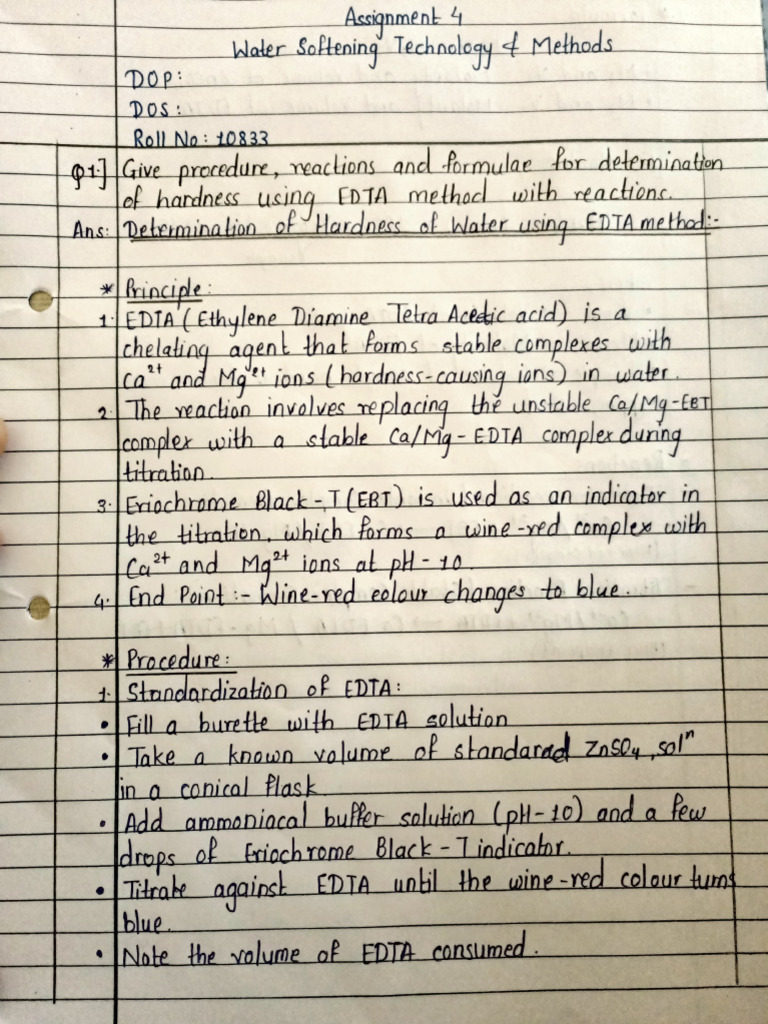 Assignment 4
Water Softening Technology & Methods
DOP:
DOS:
Roll No: 10833
Q1.] Give procedure, reactions and formulae for determination
of hardness using EDTA method with reactions.
Ans: Determination of Hardness of Water using EDTA method:-
* Principle:
1. EDTA (Ethylene Diamine Tetra Acetic acid) is a
chelating agent that forms stable complexes with
Ca²⁺ and Mg²⁺ ions (hardness-causing ions) in water.
2. The reaction involves replacing the unstable Ca/Mg-EBT
complex with a stable Ca/Mg-EDTA complex during
titration.
3. Eriochrome Black-T (EBT) is used as an indicator in
the titration, which forms a wine-red complex with
Ca²⁺ and Mg²⁺ ions at pH-10.
4. End Point:- Wine-red colour changes to blue.
* Procedure:
1. Standardization of EDTA:
• Fill a burette with EDTA solution
• Take a known volume of standarad ZnSO₄ solⁿ
in a conical flask
• Add ammoniacal buffer solution (pH-10) and a few
drops of Eriochrome Black-T indicator.
• Titrate against EDTA until the wine-red colour turns
blue.
• Note the volume of EDTA consumed.